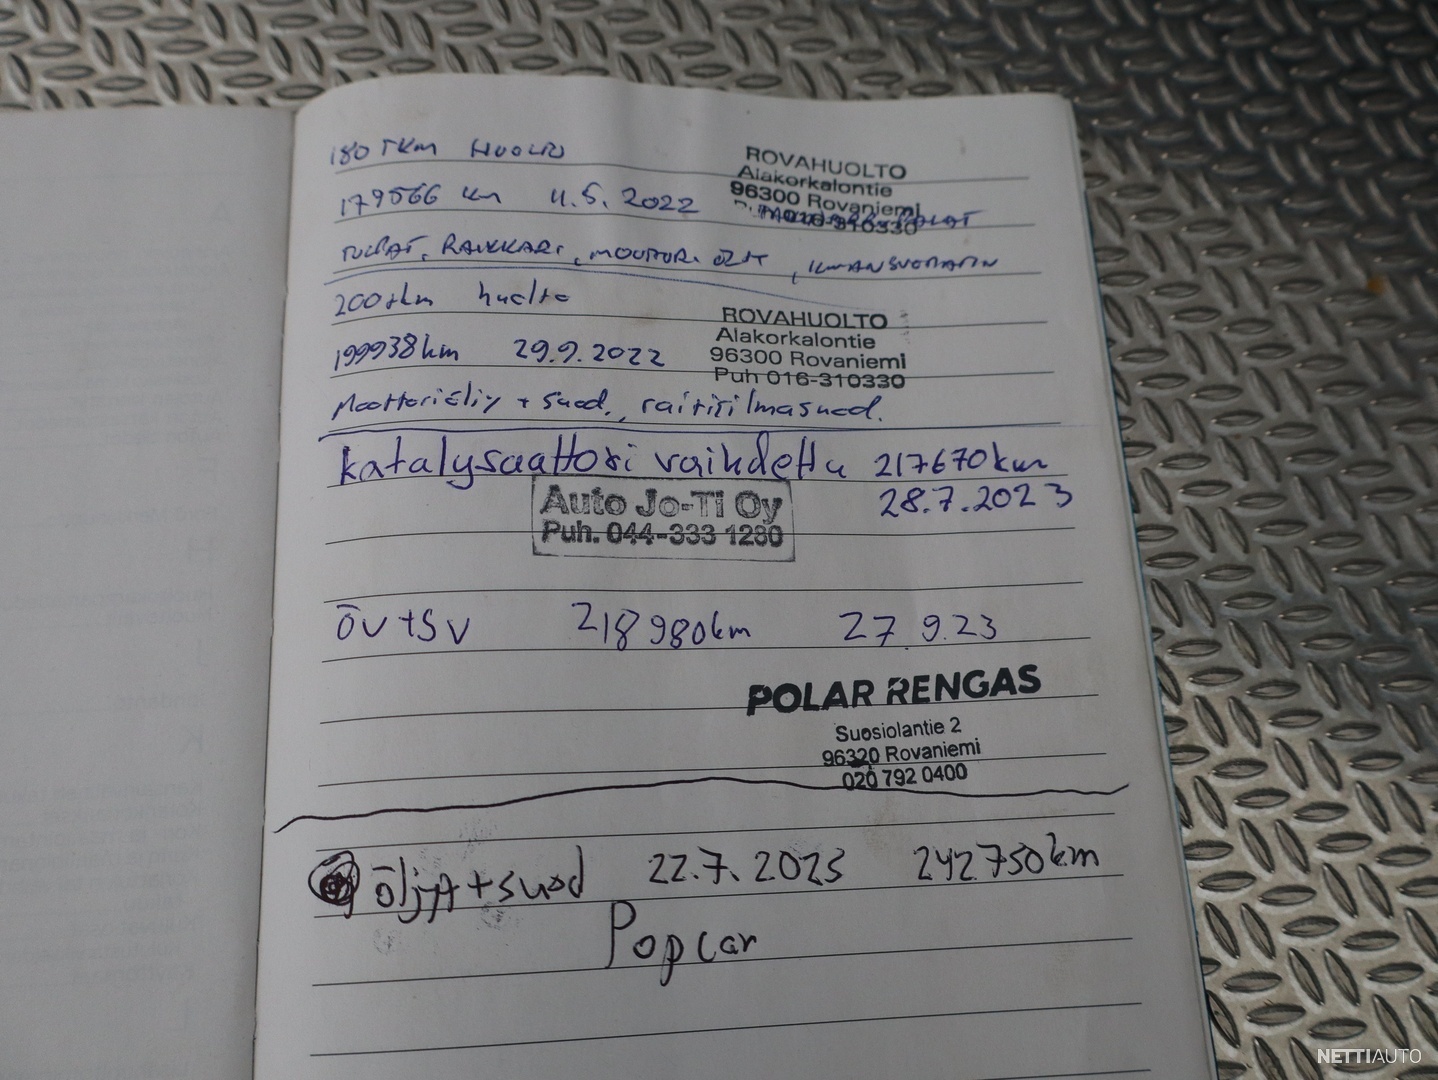 180 TKm HUOLTO
ROVAHUOLTO
Alakorkalontie
96300 Rovaniemi
016-310330
179566 km 11.5.2022
TULPAT, RAIKKARI, MOOTTORI ÖLJY, ILMANSUODATIN
200tkm huolto
ROVAHUOLTO
Alakorkalontie
96300 Rovaniemi
Puh 016-310330
199938km 29.9.2022
Moottoriöljy + suod., raitisilmasuod.
katalysaattori vaihdettu 217670km
28.7.2023
Auto Jo-Ti Oy
Puh. 044-333 1280
ÖV+SV 218980km 27.9.23
POLAR RENGAS
Suosiolantie 2
96320 Rovaniemi
020 792 0400
öljyt+suod 22.7.2025 242750km
Popcar
NETTIAUTO